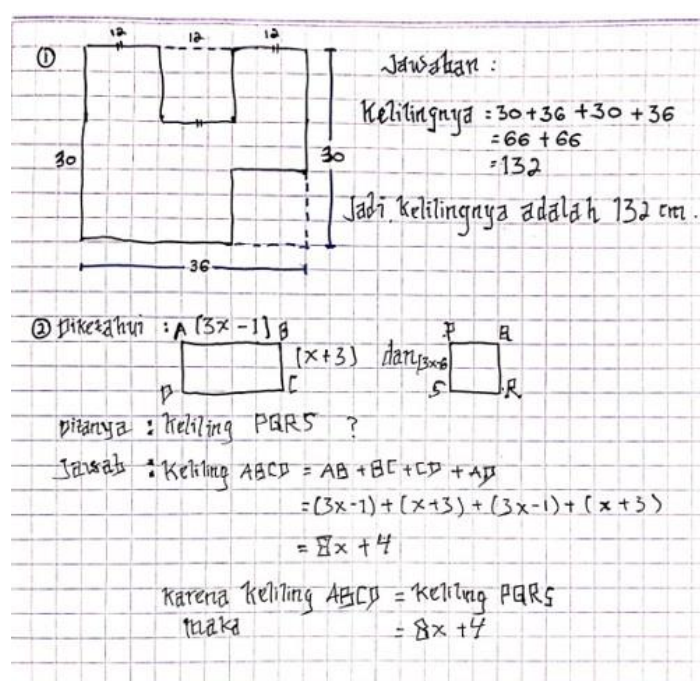 ①
12 12 12
30
30
36
Jawaban :
Kelilingnya = 30 + 36 + 30 + 36
= 66 + 66
= 132
Jadi, Kelilingnya adalah 132 cm.
② Diketahui : A (3x - 1) B
(x+3) dan (3x-6
D C
P Q
S R
Ditanya : Keliling PQRS ?
Jawab : Keliling ABCD = AB + BC + CD + AD
= (3x-1) + (x+3) + (3x-1) + (x+3)
= 8x + 4
Karena Keliling ABCD = Keliling PQRS
maka = 8x + 4